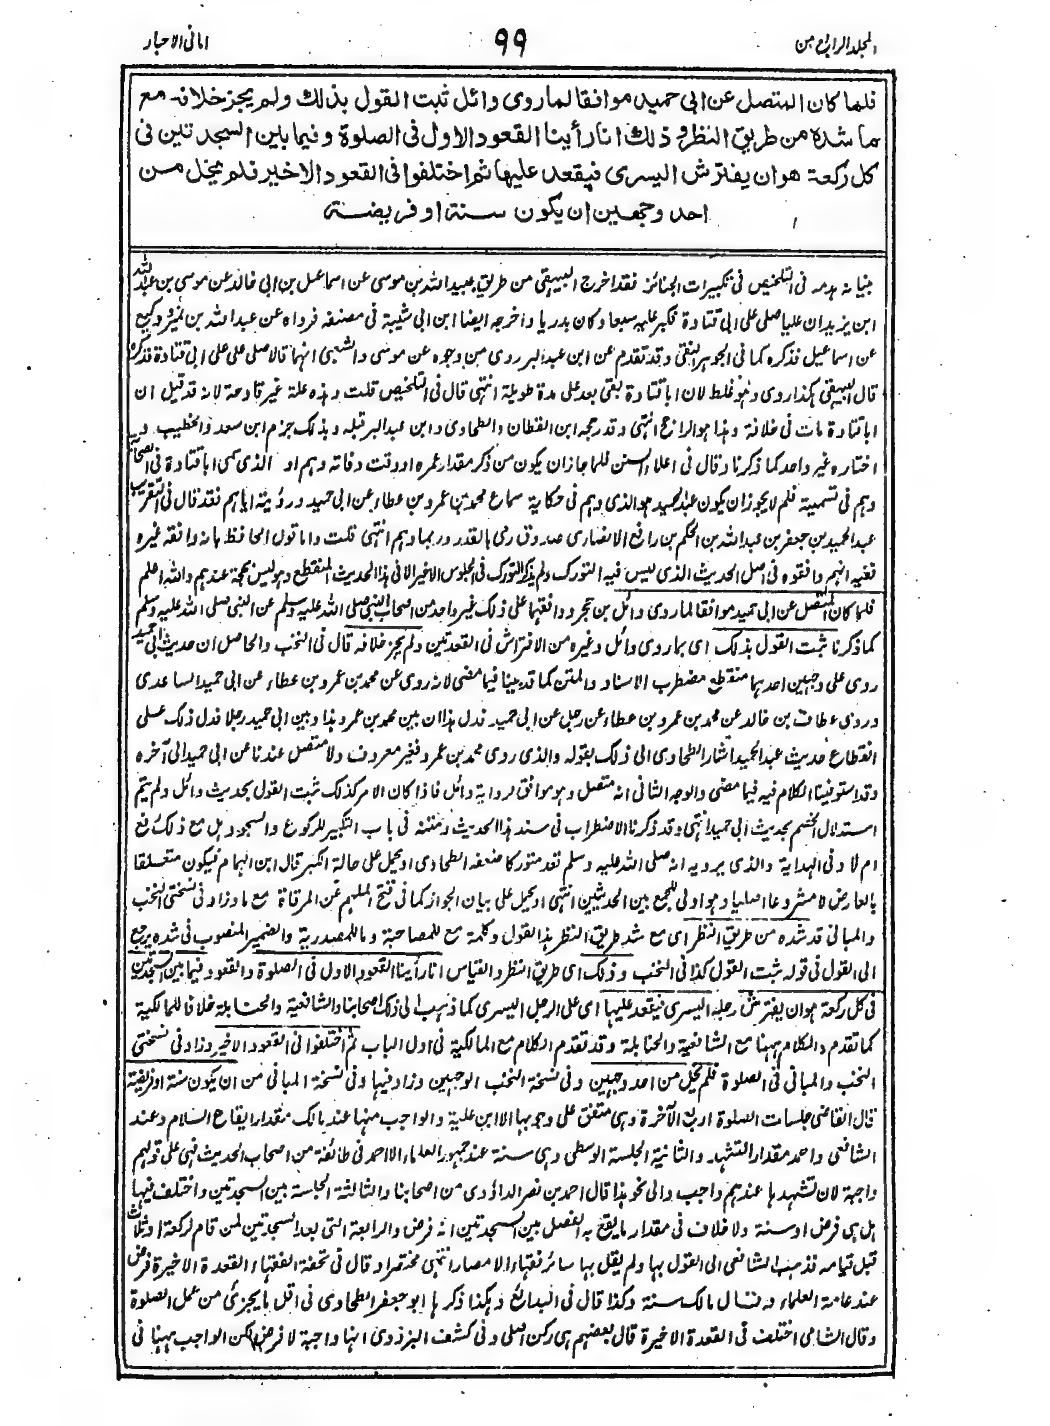 المجلد الرابع من
٩٩
امانى الاحبار
فلما كان المتصل عن ابى حميد موافقا لما روى وائل ثبت القول بذلك ولم يجز خلافه مع
ما شده من طريق النظر و ذلك انا رأينا القعود الاول فى الصلوة وفيما بين السجدتين فى
كل ركعة هو ان يفترش اليسرى فيقعد عليها ثم اختلفوا فى القعود الاخير فلم يخل من
احد وجهين ان يكون سنة او فريضة
بيانه مرمه فى التلخيص فى تكبيرات الجنائز فقد اخرج البيهقى من طريق عبيد الله بن موسى عن اسماعيل بن ابى خالد عن موسى بن عبد الله
ابن يزيد ان عليا صلى على ابى قتادة فكبر عليه سبعا وكان بدريا واخرجه ايضا ابن ابى شيبة فى مصنفه فرواه عن عبد الله بن نمير و وكيع
عن اسماعيل فذكره كما فى الجوهر النقى وقد تقدم عن ابن عبد البر روى من وجوه عن موسى والشعبى انهما قالا صلى على على ابى قتادة فذكره
قال البيهقى هكذا روى وهو غلط لان ابا قتادة بقى بعد على مدة طويلة انتهى قال فى التلخيص قلت وهذه علة غير قادحة لانه قد قيل ان
ابا قتادة مات فى خلافة وهذا هو الراجح انتهى وقد رجحه ابن القطان والطحاوى وابن عبد البر قبله وبذلك جزم ابن سعد والخطيب وبه
اختاره غير واحد كما ذكرنا وقال فى اعلاء السنن فلما جاز ان يكون من ذكر مقدار عمره او وقت وفاته وهم او الذى سمى ابا قتادة فى الصحابة
وهم فى تسمية فلم لا يجوز ان يكون عبد الحميد هو الذى وهم فى حكاية سماع محمد بن عمرو بن عطاء عن ابى حميد ورؤيته اياهم فقد قال فى التقريب
عبد الحميد بن جعفر بن عبد الله بن الحكم بن رافع الانصارى صدوق رمى بالقدر وربما وهم انتهى قلت واما قول الحافظ بانه وافقه غيره
ففيه انهم وافقوه فى اصل الحديث الذى ليس فيه التورك ولم يذكر التورك فى الجلوس الاخير الا فى هذا الحديث المنقطع وهو ليس بحجة عندهم والله اعلم
فلما كان المتصل عن ابى حميد موافقا لما روى وائل بن حجر ووافقهما على ذلك غير واحد من اصحاب النبى صلى الله عليه وسلم عن النبى صلى الله عليه وسلم
كما ذكرنا ثبت القول بذلك اى بما روى وائل وغيره من الافتراش فى القعدتين ولم يجز خلافه قال فى النخب والحاصل ان حديث ابى حميد
روى على وجهين احدهما منقطع مضطرب الاسناد والمتن كما قد بينا فيما مضى لانه روى عن محمد بن عمرو بن عطاء عن ابى حميد الساعدى
وروى عطاف بن خالد عن محمد بن عمرو بن عطاء عن رجل عن ابى حميد فدل هذا ان بين محمد بن عمرو هذا وبين ابى حميد رجلا فدل ذلك على
انقطاع حديث عبد الحميد اشار الطحاوى الى ذلك بقوله والذى روى محمد بن عمرو فغير معروف ولا متصل عندنا عن ابى حميد الى آخره
وقد استوفينا الكلام فيه فيما مضى والوجه الثانى انه متصل وهو موافق لرواية وائل فاذا كان الامر كذلك ثبت القول بحديث وائل ولم يتم
استدلال الخصم بحديث ابى حميد انتهى وقد ذكرنا الاضطراب فى سند هذا الحديث ومتنه فى باب التكبير للركوع والسجود هل مع ذلك رفع
ام لا وفى الهداية والذى يرويه انه صلى الله عليه وسلم قعد متوركا ضعفه الطحاوى او يحمل على حالة الكبر قال ابن الهمام فيكون متعلقا
بالعارض لا مشروعا اصليا وهو اولى للجمع بين الحديثين انتهى او يحمل على بيان الجواز كما فى فتح الملهم عن المرقاة مع ما وزاد فى نسختى النخب
والمبانى قد شده من طريق النظر اى مع شد طريق النظر هذا القول وكلمة مع للمصاحبة وما للمصدرية والضمير المنصوب فى شده يرجع
الى القول فى قوله ثبت القول كذا فى النخب وذلك اى طريق النظر والقياس انا رأينا القعود الاول فى الصلوة والقعود فيما بين السجدتين
فى كل ركعة هو ان يفترش رجله اليسرى فيقعد عليها اى على الرجل اليسرى كما ذهب الى ذلك اصحابنا والشافعية والحنابلة خلافا للمالكية
كما تقدم والكلام ههنا مع الشافعية والحنابلة وقد تقدم الكلام مع المالكية فى اول الباب ثم اختلفوا فى القعود الاخير وزاد فى نسختى
النخب والمبانى فى الصلوة فلم يخل من احد وجهين وفى نسخة النخب الوجهين وزاد فيها وفى نسخة المبانى من ان يكون سنة او فريضة
قال القاضى جلسات الصلوة اربع الآخرة وهى متفق على وجوبها الا ابن علية والواجب منها عند مالك مقدار ايقاع السلام وعند
الشافعى واحمد مقدار التشهد والثانية الجلسة الوسطى وهى سنة عند جمهور العلماء الا احمد فى طائفة من اصحاب الحديث فهى على قولهم
واجبة لان تشهدها عندهم واجب والى نحو هذا قال احمد بن نصر الداؤدى من اصحابنا والثالثة الجلسة بين السجدتين واختلف فيها
هل هى فرض او سنة ولا خلاف فى مقدار ما يقع به الفصل بين السجدتين انه فرض والرابعة التى بعد السجدتين لمن قام لركعة او ثلاث
قبل قيامه فذهب الشافعى الى القول بها ولم يقل بها سائر فقهاء الامصار انتهى مختصرا وقال فى تحفة الفقهاء القعدة الاخيرة فرض
عند عامة العلماء وقال مالك سنة وكذا قال فى البدائع وهكذا ذكرها ابو جعفر الطحاوى فى اقل ما يجزئ من عمل الصلوة
وقال الشامى اختلف فى القعدة الاخيرة قال بعضهم هى ركن اصلى وفى كشف البزدوى انها واجبة لا فرض لكن الواجب ههنا فى